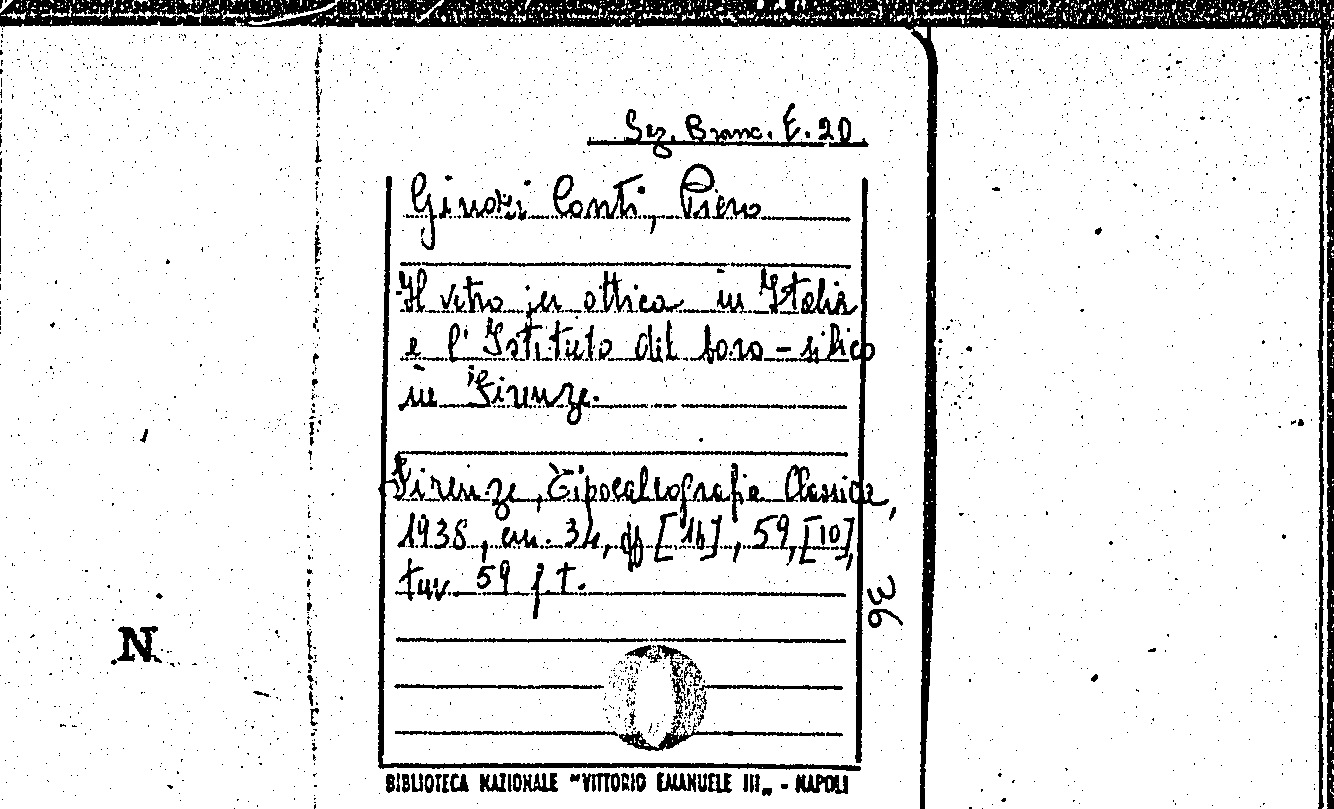 Sez. Branc. E. 20
Ginori Conti, Piero
Il vetro per ottica in Italia
e l'Istituto del boro-silico
in Firenze.
Firenze, Tipocalcografia Classica,
1938, cm. 34, pp [16], 59, [10],
tav. 59 f.t.
36
N
BIBLIOTECA NAZIONALE "VITTORIO EMANUELE III„ - NAPOLI